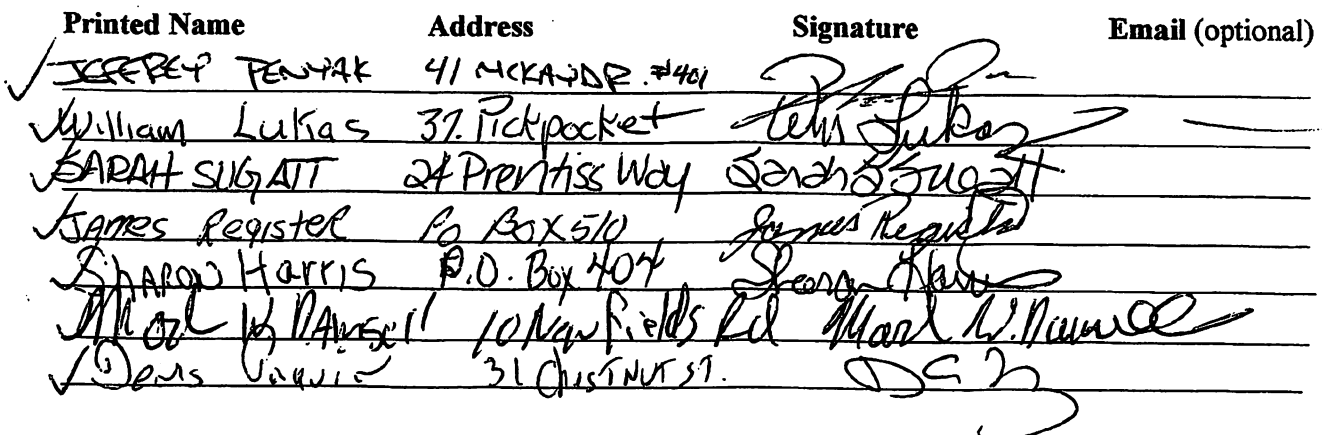 Printed Name Address Signature Email (optional)
✓ JEFFREY PENYAK 41 MCKAY DR. #401
✓ William Lukas 37 Pickpocket Lukas
✓ SARAH SUGATT 24 Prentiss Way Sarah S Sugatt
✓ James Register Po Box 510 James Register
✓ SHARON Harris P.O. Box 404 Sharon Harris
10 Newfields Rd Mark W.
✓ Denis 31 ChesTNUT ST.